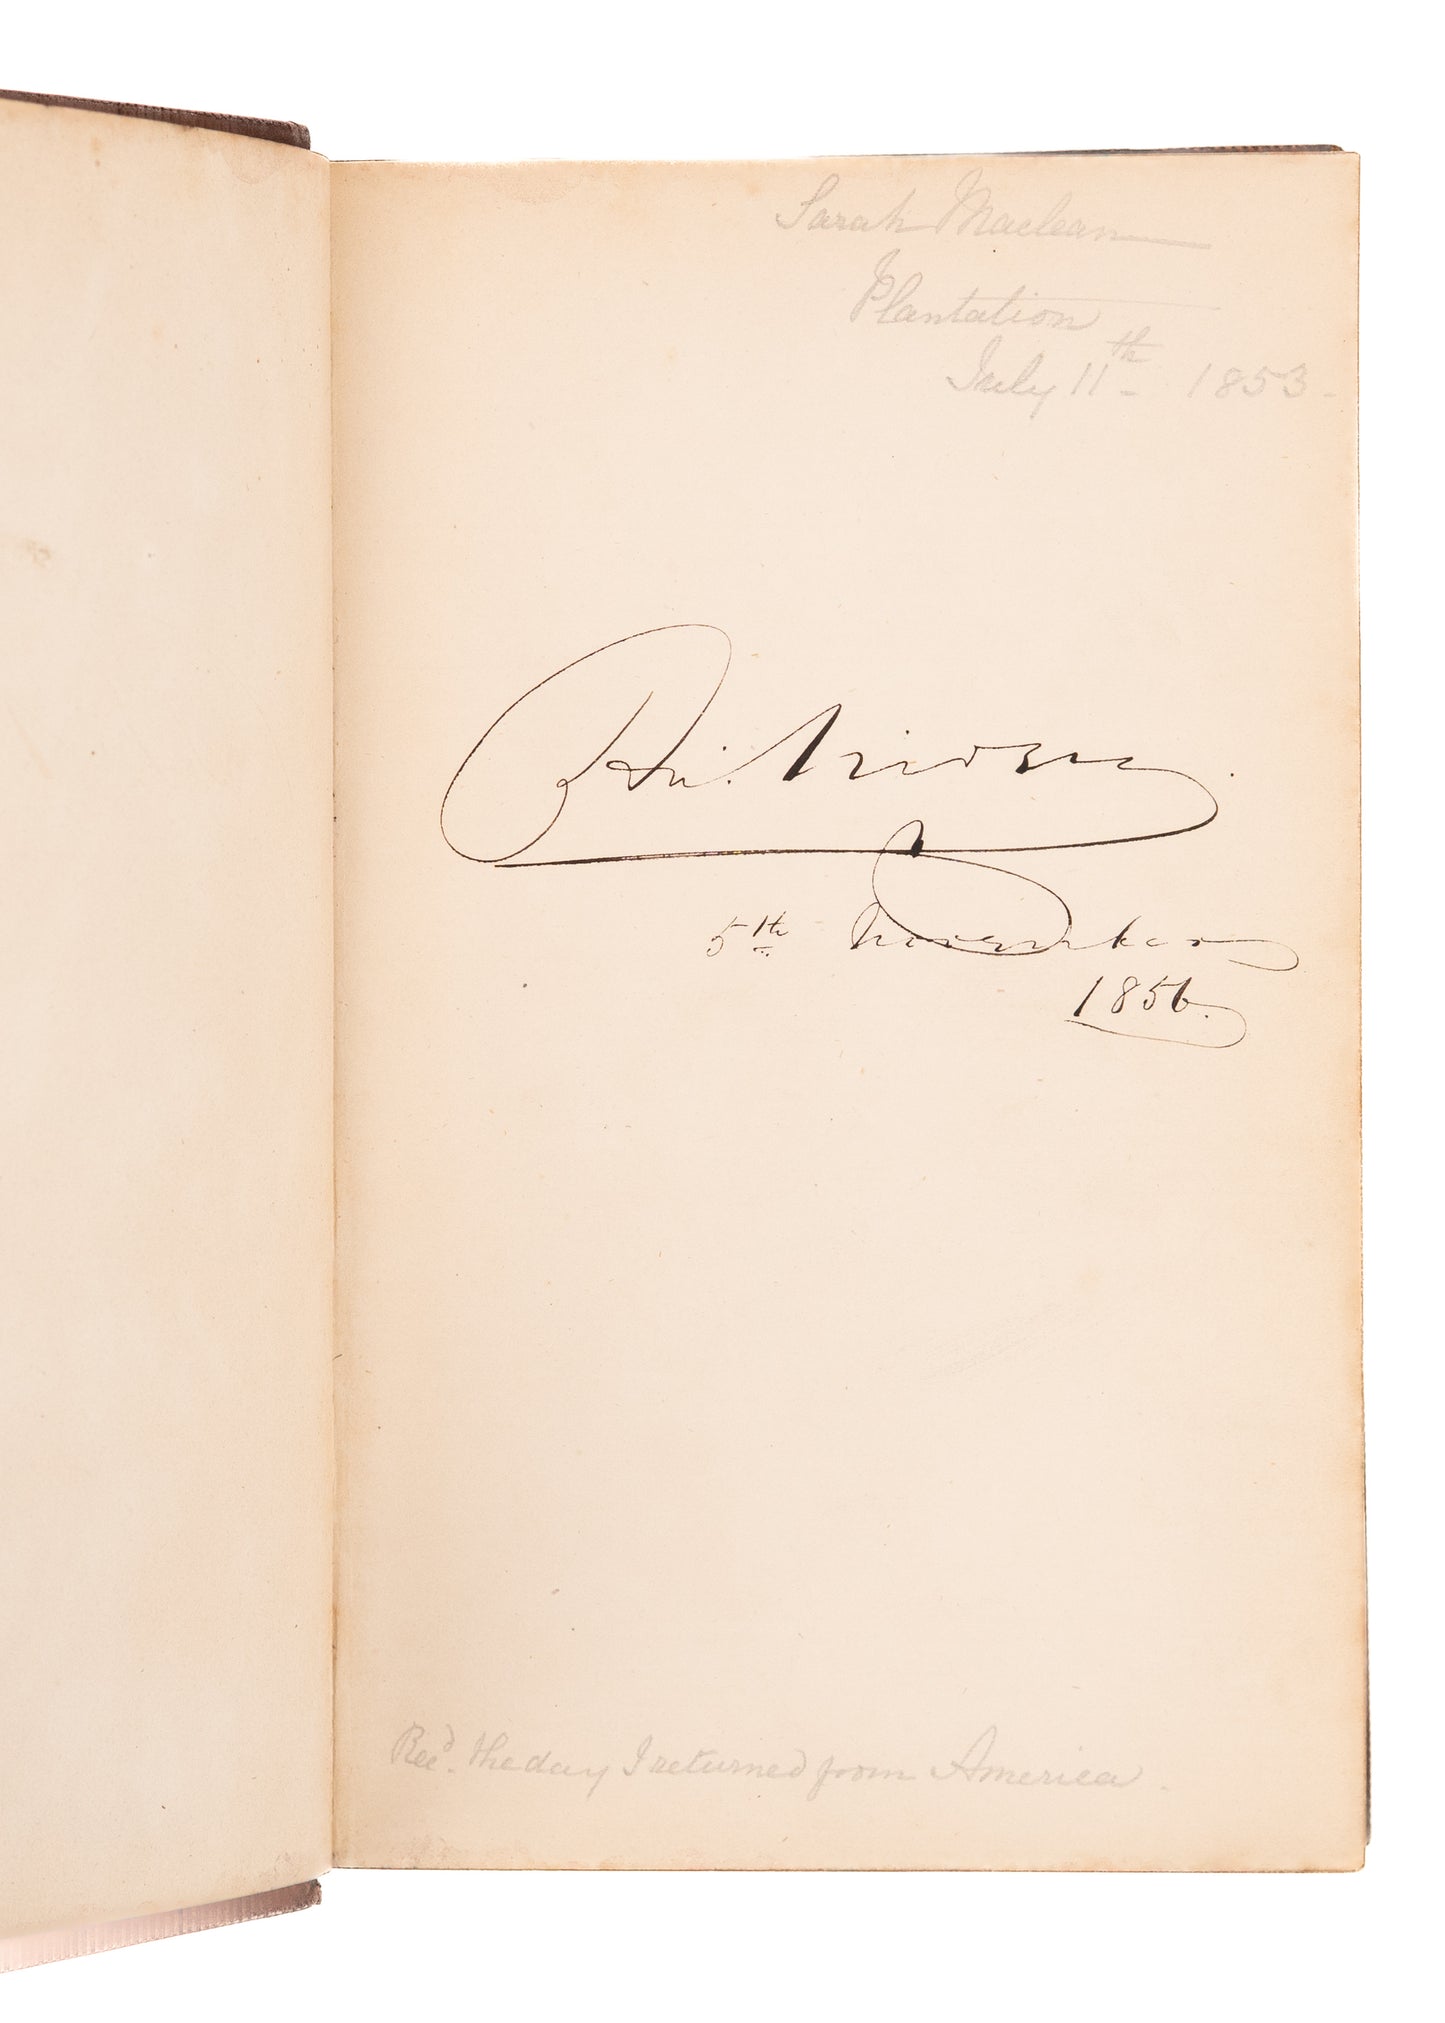 Sarah Maclean
Plantation
July 11th 1853.
5th November
1856.
Recd. the day I returned from America.